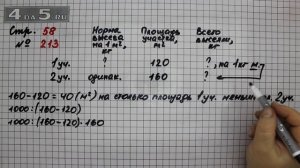 4DA5.RU
Стр. 58
№ 213
Норма высева на 1 м², кг
Площадь участка, м²
Всего высеяли, кг
1уч. ? 120 ?, на 1
2уч. одинак. 160 ?
160-120=40(м²) на столько площадь 1уч. 2уч.
1000:(160-120)
1000:(160-120)·160